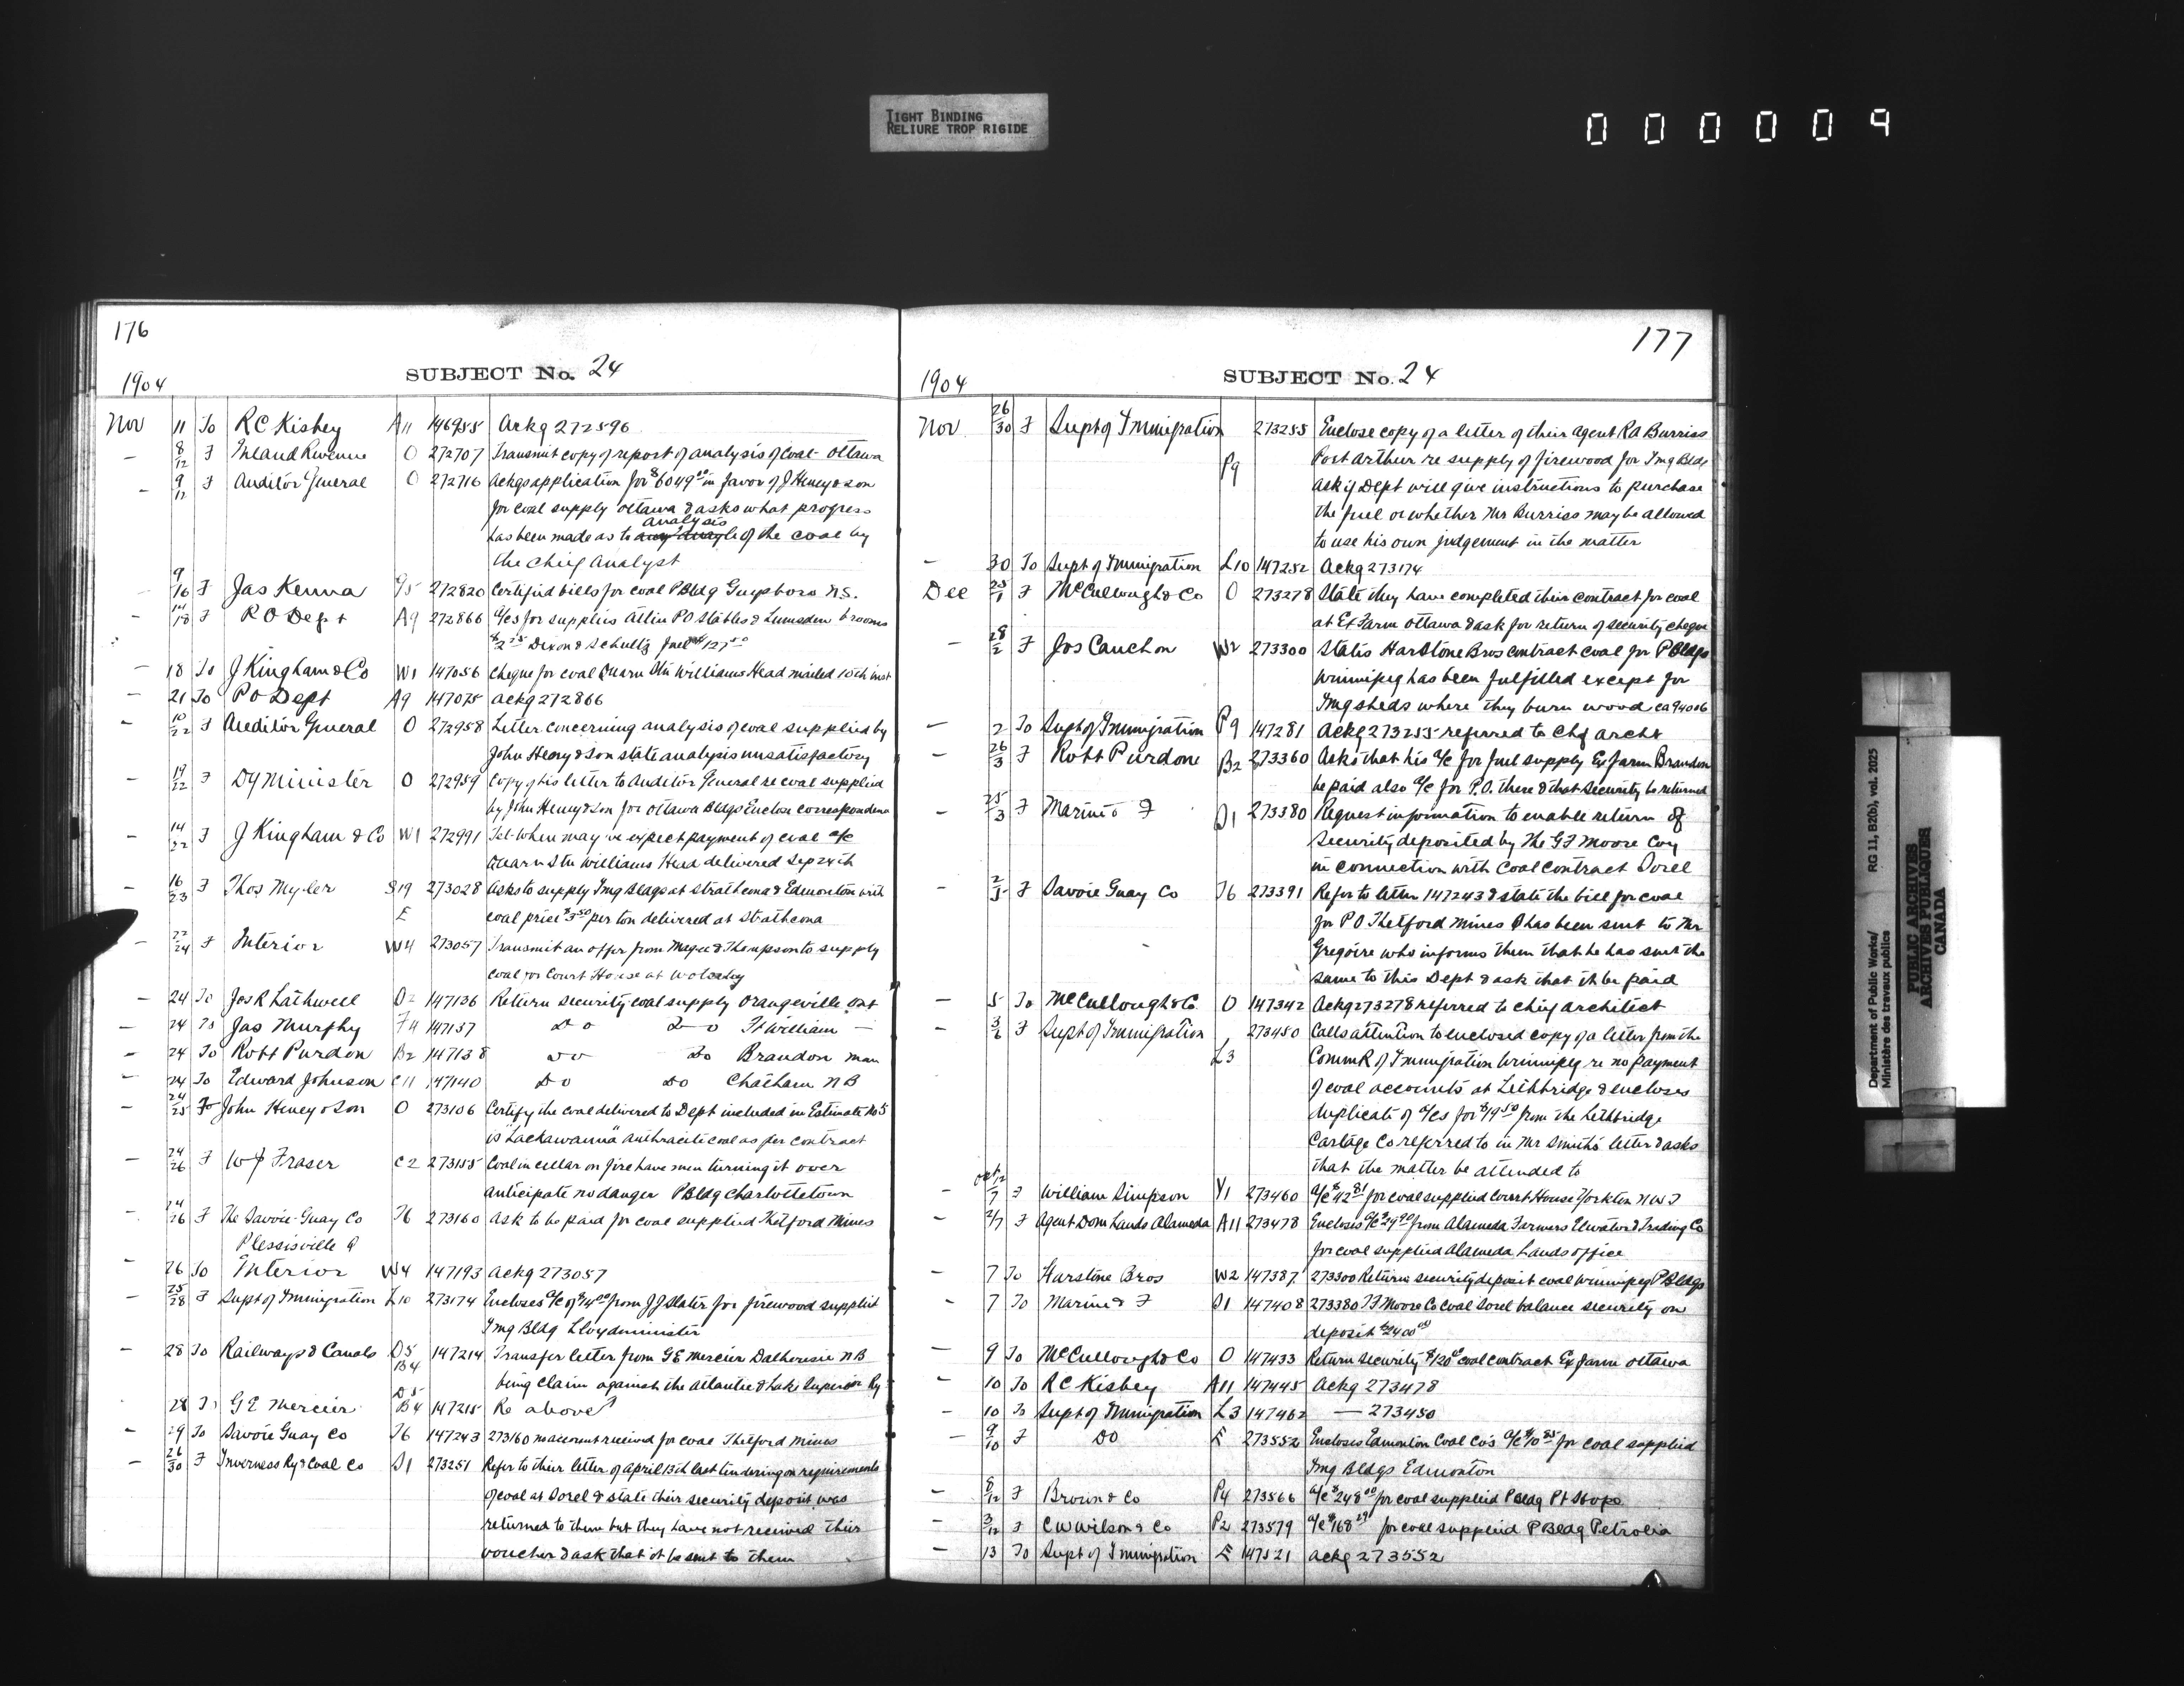 TIGHT BINDING
RELIURE TROP RIGIDE
000009
176
SUBJECT No. 24
1904
Nov 11 To R C Kisbey A11 146955 Ackg 272596
— 8/12 F Inland Revenue O 272707 Transmit copy of report of analysis of Coal - Ottawa
— 9/12 F Auditor General O 272716 Ackgs application for $6049.00 in favor of J Heney & Son
for coal supply Ottawa & asks what progress
analysis
has been made as to of the coal by
the chief analyst
9/16 F Jas Kenna G5 272820 Certified bills for coal P Bldg Guysboro N.S.
— 14/18 F P O Dept A9 272866 a/cs for supplies Atlin P O Stables & Lumsden brooms
$2.25 Dixon & Schultz fuel $127.50
— 18 To J Kingham & Co W1 147056 Cheque for coal Quarn Stn Williams Head mailed 15th inst
— 21 To P O Dept A9 147075 Ackg 272866
— 10/22 F Auditor General O 272958 Letter concerning analysis of coal supplied by
John Heney & Son state analysis unsatisfactory
— 19/22 F Dy Minister O 272959 Copy of his letter to Auditor General re coal supplied
by John Heney & Son for Ottawa Bldgs Enclose correspondence
— 14/22 F J Kingham & Co W1 272991 Tel - When may we expect payment of coal a/c
Quarn Stn Williams Head delivered Sep 24th
— 16/23 F Thos Myler S19 273028 Asks to supply Img Bldgs at Strathcona & Edmonton with
E coal price $3.50 per ton delivered at Strathcona
— 22/24 F Interior W4 273057 Transmit an offer from Magee & Thompson to supply
coal for Court House at Wolseley
— 24 To Jos R Lathwell O2 147136 Return security coal supply Orangeville Ont
— 24 To Jas Murphy F4 147137 Do Do Ft William —
— 24 To Robt Purdon B2 147138 Do Do Brandon Man
— 24 To Edward Johnson C11 147140 Do Do Chatham N B
— 24/25 Fo John Heney & Son O 273106 Certify the coal delivered to Dept included in Estimate No 5
is "Lackawanna" anthracite coal as per contract
— 24/26 F W J Fraser C2 273155 Coal in cellar on fire have men turning it over
anticipate no danger P Bldg Charlottetown
— 24/26 F The Savoie-Guay Co T6 273160 Ask to be paid for coal supplied Thetford Mines
Plessisville Q
— 26 To Interior W4 147193 Ackg 273057
— 25/28 F Supt of Immigration L10 273174 Encloses a/c of $14.00 from J J Slater for firewood supplied
Img Bldg Lloydminister
— 28 To Railways & Canals D5 B4 147214 Transfer letter from G E Mercier Dalhousie N B
being claim against the Atlantic & Lake Superior Ry
28 To G E Mercier D5 B4 147215 Re above
— 29 To Savoie Guay Co T6 147243 273160 no account received for coal Thetford Mines
— 26/30 F Inverness Ry & Coal Co S1 273251 Refer to their letter of April 13th last tendering on requirements
of coal at Sorel & state their security deposit was
returned to them but they have not received their
voucher & ask that it be sent to them
177
SUBJECT No. 24
1904
Nov 26/30 F Supt of Immigration 273255 Enclose copy of a letter of their agent R A Burriss
P9 Port Arthur re supply of firewood for Img Bldg
Ask if Dept will give instructions to purchase
the fuel or whether Mr Burriss may be allowed
to use his own judgement in the matter
— 30 To Supt of Immigration L10 147252 Ackg 273174
Dec 25/1 F McCullough & Co O 273278 State they have completed their contract for coal
at Ex Farm Ottawa & ask for return of security cheque
— 28/2 F Jos Cauchon W2 273300 States Harstone Bros contract coal for P Bldgs
Winnipeg has been fulfilled except for
Img sheds where they burn wood ca 94006
— 2 To Supt of Immigration P9 147281 Ackg 273255 referred to Chf archt
— 26/3 F Robt Purdone B2 273360 Asks that his a/c for fuel supply Ex farm Brandon
be paid also a/c for P.O. there & that security be returned
— 25/3 F Marine & F S1 273380 Request information to enable return of
security deposited by The G F Moore Coy
in connection with Coal Contract Sorel
— 2/5 F Savoie Guay Co T6 273391 Refer to letter 147243 & state the bill for coal
for P O Thetford Mines Q has been sent to Mr
Gregoire who informs them that he has sent the
same to this Dept & ask that it be paid
— 5 To McCullough & Co O 147342 Ackg 273278 referred to chief architect
— 3/6 F Supt of Immigration 273450 Calls attention to enclosed copy of a letter from the
L3 Commr of Immigration Winnipeg re no payment
of coal accounts at Lethbridge & encloses
duplicate of a/cs for $19.50 from the Lethbridge
Cartage Co referred to in Mr Smith's letter & asks
that the matter be attended to
— Oct 12/7 F William Simpson Y1 273460 a/c $42.81 for coal supplied Court House Yorkton N W T
— 2/7 F Agent Dom Lands Alameda A11 273478 Encloses a/c $29.90 from Alameda Farmers Elevator & Trading Co
for coal supplied Alameda Lands office
— 7 To Harstone Bros W2 147387 273300 Returns security deposit coal Winnipeg P Bldgs
— 7 To Marine & F S1 147408 273380 F Moore Co Coal Sorel balance security on
deposit $2400.00
— 9 To McCullough & Co O 147433 Return security $120.00 coal contract Ex farm Ottawa
— 10 To R C Kisbey A11 147445 Ackg 273478
— 10 To Supt of Immigration L3 147462 — 273450
— 9/10 F Do E 273552 Encloses Edmonton Coal Co's a/c $10.85 for coal supplied
Img Bldgs Edmonton
— 8/12 F Brown & Co P4 273566 a/c $248.00 for coal supplied P Bldg Pt Hope
— 3/12 F C W Wilson & Co P2 273579 a/c $168.29 for coal supplied P Bldg Petrolia
— 13 To Supt of Immigration E 147521 Ackg 273552
Department of Public Works/ RG 11, B2(b), vol. 2025
Ministère des travaux publics
PUBLIC ARCHIVES
ARCHIVES PUBLIQUES
CANADA